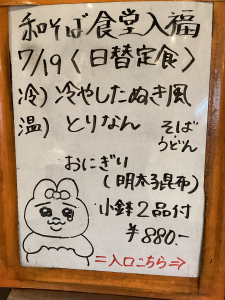 和そば食堂入福
7/19〈日替定食〉
冷)冷やしたぬき風
温)とりなん
そば
うどん
おにぎり
(明太子昆布)
小鉢2品付
¥880.-
=入口こちら⇒